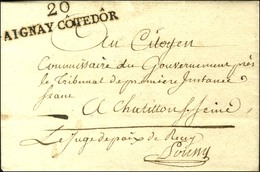 20
AIGNAY CÔTEDÔR
Au Citoyen
Commissaire du Gouvernement près
le Tribunal de première Instance
franc
A Chatillon s/seine
Le Juge de paix de Recey